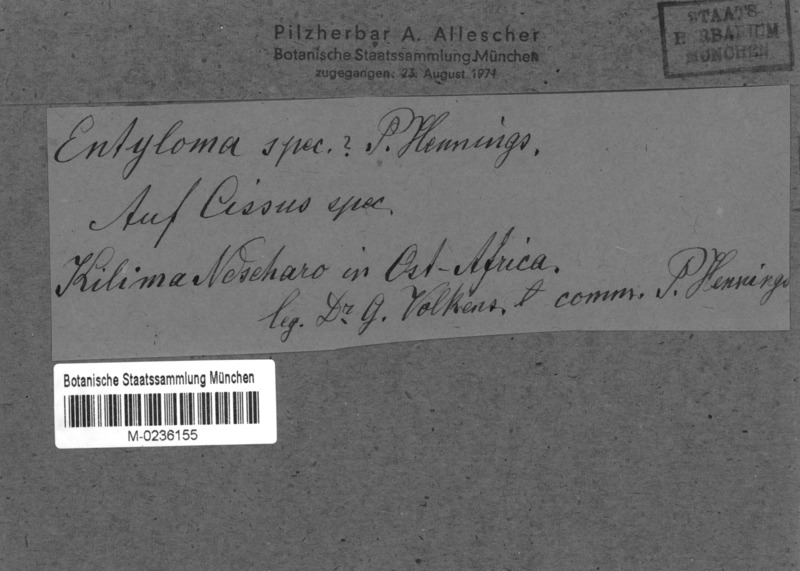 Pilzherbar A. Allescher
Botanische Staatssammlung München
zugegangen: 23. August 1971
STAATS
HERBARIUM
MÜNCHEN
Entyloma spec.? P. Hennings.
Auf Cissus spec.
Kilima Ndscharo in Ost-Africa.
leg. Dr. G. Volkens, t comm. P. Hennings
Botanische Staatssammlung München
M-0236155